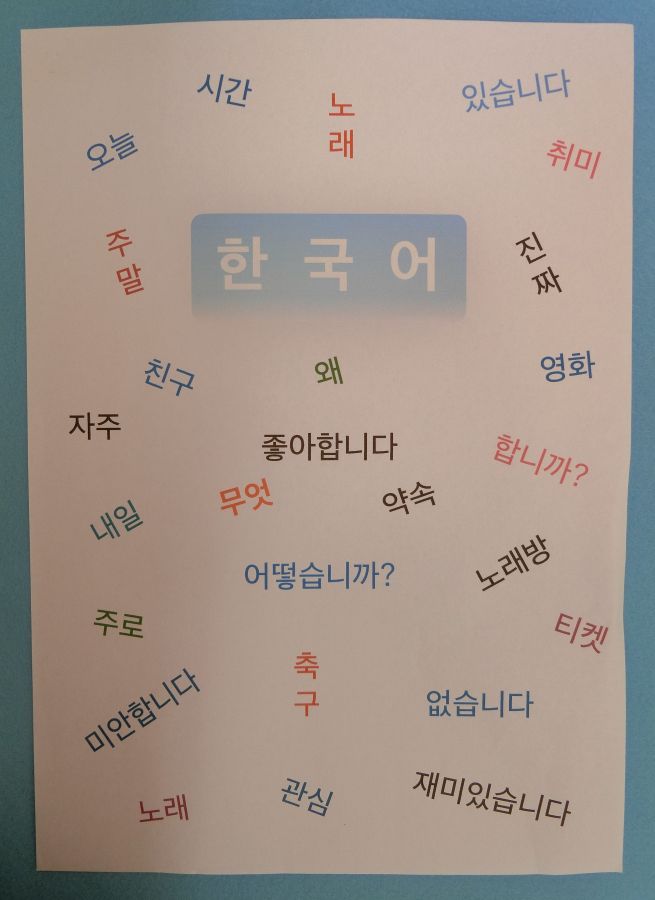 시간
노래
있습니다
오늘
취미
주말
한국어
진짜
친구
왜
영화
자주
좋아합니다
합니까?
무엇
약속
내일
어떻습니까?
노래방
주로
티켓
축구
미안합니다
없습니다
노래
관심
재미있습니다